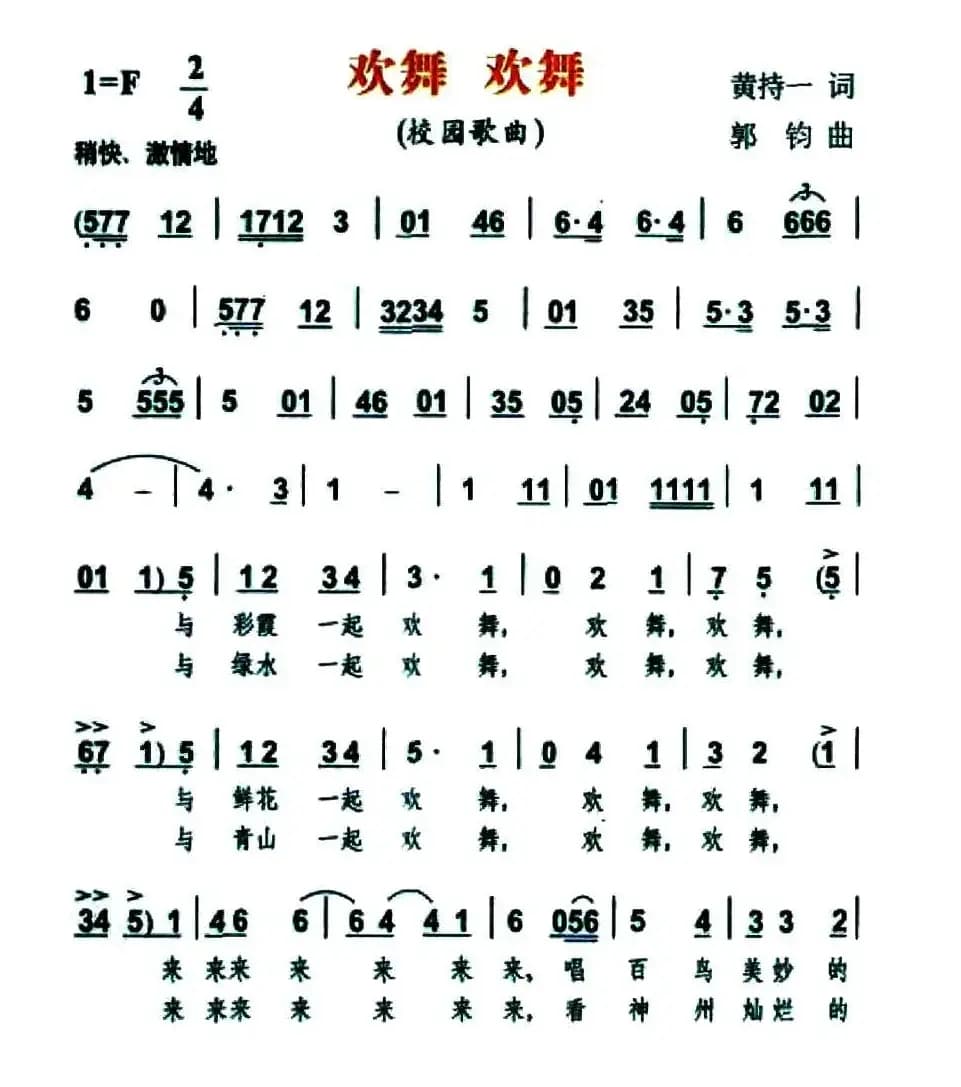 欢舞 欢舞
(校园歌曲)
1=F 2/4
稍快、激情地
黄持一 词
郭 钧 曲
(577 12 | 1712 3 | 01 46 | 6·4 6·4 | 6 666 |
6 0 | 577 12 | 3234 5 | 01 35 | 5·3 5·3 |
5 555 | 5 01 | 46 01 | 35 05 | 24 05 | 72 02 |
4 – | 4· 3 | 1 – | 1 11 | 01 1111 | 1 11 |
01 1) 5 | 12 34 | 3· 1 | 0 2 1 | 7 5 (5 |
与 彩霞 一起 欢 舞, 欢 舞, 欢 舞,
与 绿水 一起 欢 舞, 欢 舞, 欢 舞,
67 1) 5 | 12 34 | 5· 1 | 0 4 1 | 3 2 (1 |
与 鲜花 一起 欢 舞, 欢 舞, 欢 舞,
与 青山 一起 欢 舞, 欢 舞, 欢 舞,
34 5) 1 | 46 6 | 64 41 | 6 056 | 5 4 | 3 3 2 |
来 来来 来 来 来 来, 唱 百 鸟 美 妙 的
来 来来 来 来 来 来, 看 神 州 灿 烂 的